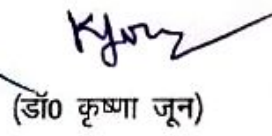 (डॉ0 कृष्णा जून)